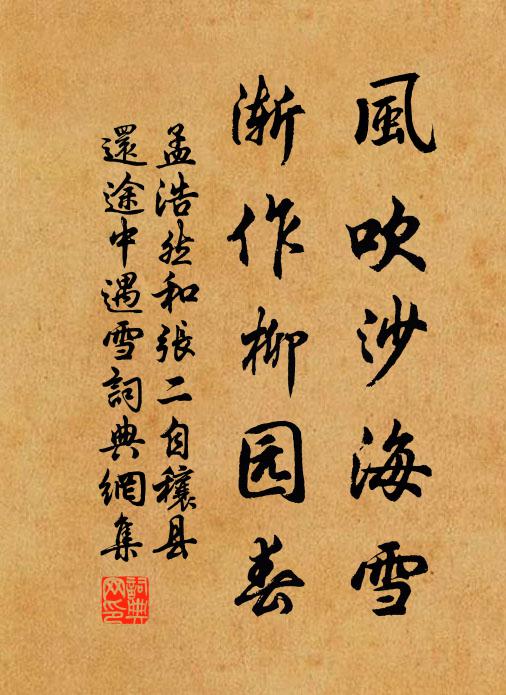 風吹沙海雪
渐作柳园春
孟浩然和張二自穰县
還途中遇雪詞典網集
詞典网印